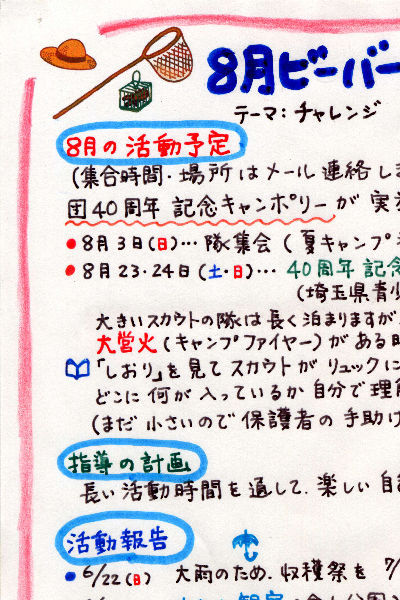 8月ビーバー
テーマ：チャレンジ
8月の活動予定
（集合時間・場所はメール連絡しま
団40周年記念キャンポリーが実
●8月3日(日)…隊集会（夏キャンプ
●8月23・24日(土・日)…40周年記念
（埼玉県青少
大きいスカウトの隊は長く泊まりますが
大営火（キャンプファイヤー）がある時
「しおり」を見てスカウトがリュックに
どこに何が入っているか自分で理解
（まだ小さいので保護者の手助け
指導の計画
長い活動時間を通して、楽しい自
活動報告
●6/22(日) 大雨のため、収穫祭を 7/